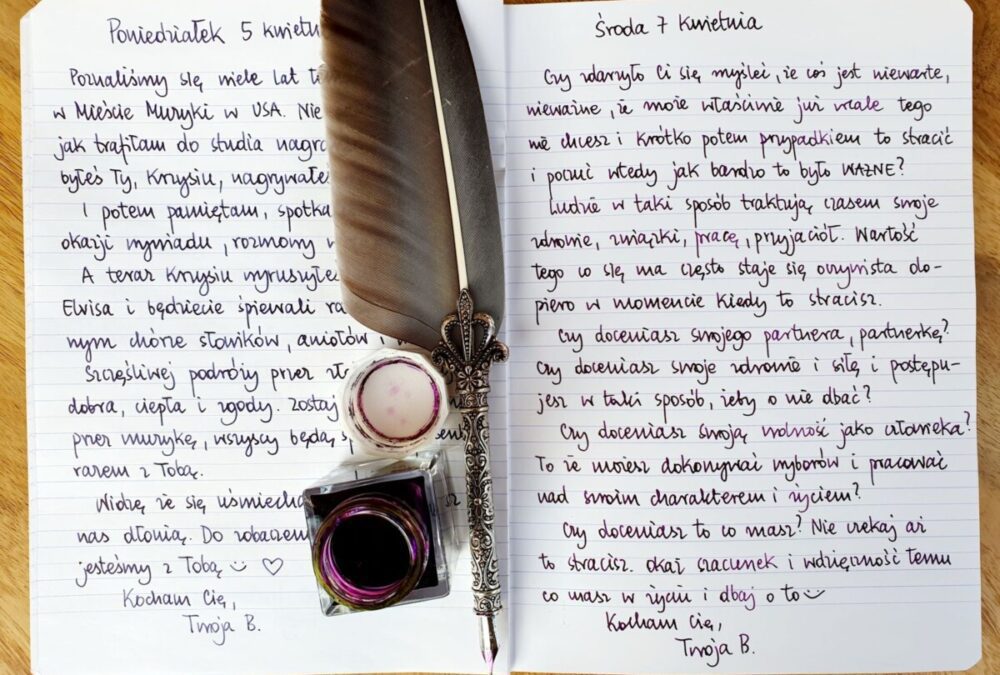 Poniedziałek 5 kwietn
Poznaliśmy się wiele lat t
w Mieście Muzyki w USA. Nie
jak trafiłam do studia nagra
byłeś Ty, Krzysiu, nagrywałe
I potem pamiętam, spotka
okazji wywiadu, rozmowy w
A teraz Krzysiu wyruszyłe
Elvisa i będziecie śpiewali ra
nym chórze słowików, aniołów i
Szczęśliwej podróży przez
dobra, ciepła i zgody. Zostaj
przez muzykę, wszyscy będą
razem z Tobą.
Widzę że się uśmiecha
nas dłonią. Do zobaczen
jesteśmy z Tobą
Kocham Cię,
Twoja B.
Środa 7 Kwietnia
Czy zdarzyło Ci się myśleć, że coś jest niewarte,
nieważne, że może właściwie już wcale tego
nie chcesz i krótko potem przypadkiem to stracić
i poczuć wtedy jak bardzo to było WAŻNE?
Ludzie w taki sposób traktują czasem swoje
zdrowie, związki, pracę, przyjaciół. Wartość
tego co się ma często staje się oczywista do-
piero w momencie kiedy to stracisz.
Czy doceniasz swojego partnera, partnerkę?
Czy doceniasz swoje zdrowie i siłę i postępu-
jesz w taki sposób, żeby o nie dbać?
Czy doceniasz swoją wolność jako człowieka?
To że możesz dokonywać wyborów i pracować
nad swoim charakterem i życiem?
Czy doceniasz to co masz? Nie czekaj aż
to stracisz. Okaż szacunek i wdzięczność temu
co masz w życiu i dbaj o to
Kocham Cię,
Twoja B.